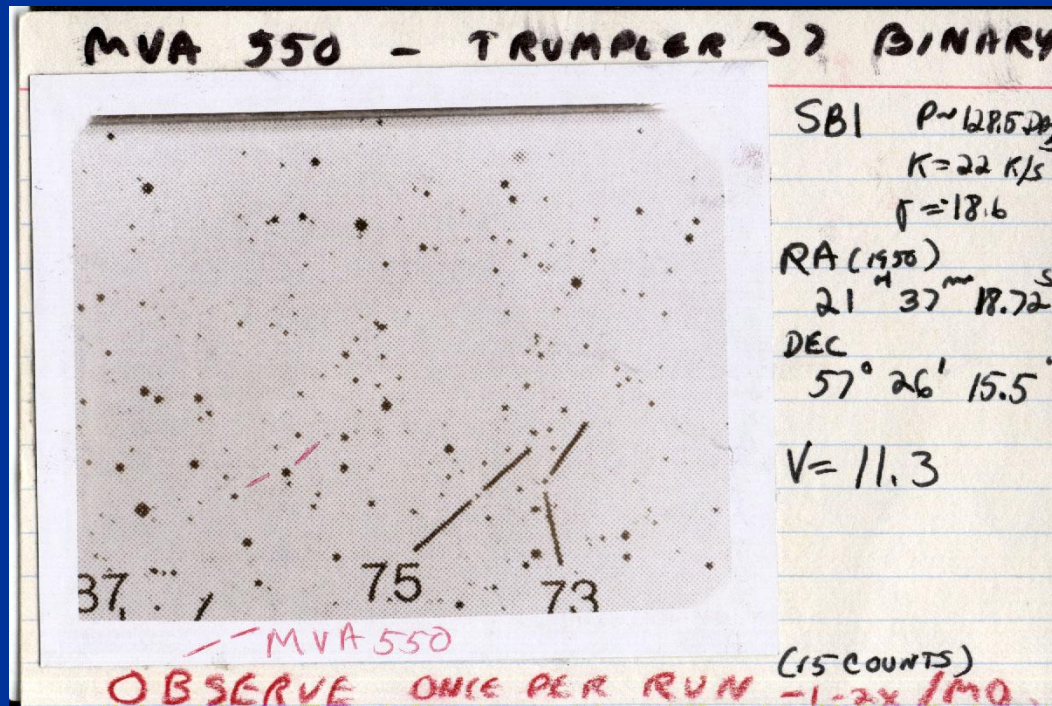 MVA 550 - TRUMPLER 37 BINARY
SB1 P~128.5 DAYS
K=22 K/S
γ=-18.6
RA (1950)
21H 37m 18.72S
DEC
57° 26' 15.5"
V= 11.3
37
75
73
MVA 550
(15 COUNTS)
OBSERVE ONCE PER RUN -1-2X/MO.